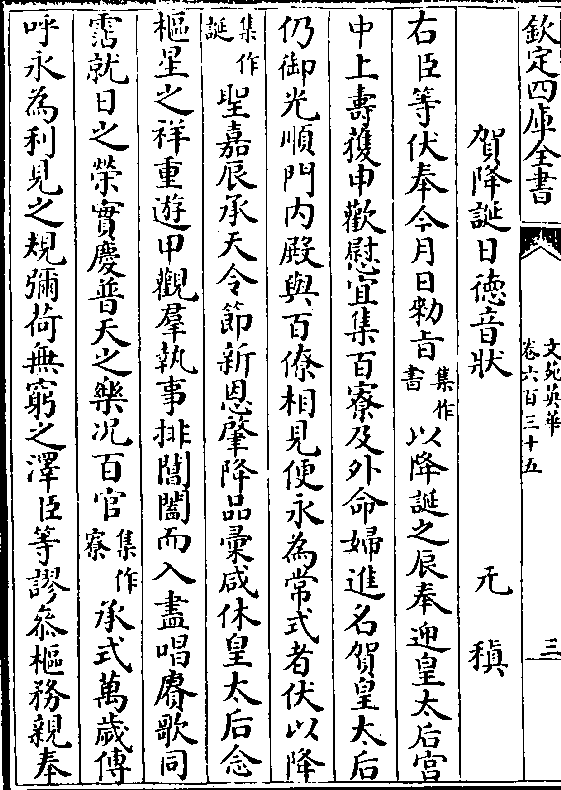 欽定四庫全書
文苑英華
卷六百三十五
三
賀降誕日德音狀
元稹
右臣等伏奉今月日勑旨集作書以降誕之辰奉迎皇太后宫
中上壽獲申歡慰宜集百寮及外命婦進名賀皇太后
仍御光順門内殿與百僚相見便永為常式者伏以降
集作誕聖嘉辰承天令節新恩肇降品彚咸休皇太后念
樞星之祥重遊甲觀羣執事排閶闔而入盡唱賡歌同
霑就日之榮實慶普天之樂况百官集作寮承式萬歲傳
呼永為利見之規彌荷無窮之澤臣等謬叅樞務親奉